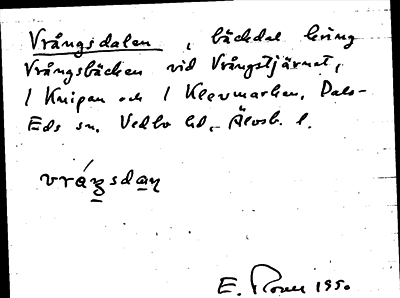 Vrångsdalen, bäckdal kring
Vrångsbäcken vid Vrångstjärnet,
/ Knipan och / Klevmarken, Dals-
Eds sn, Vedbo hd, Älvsb. l.
vráŋsdaɳ
E. 1950